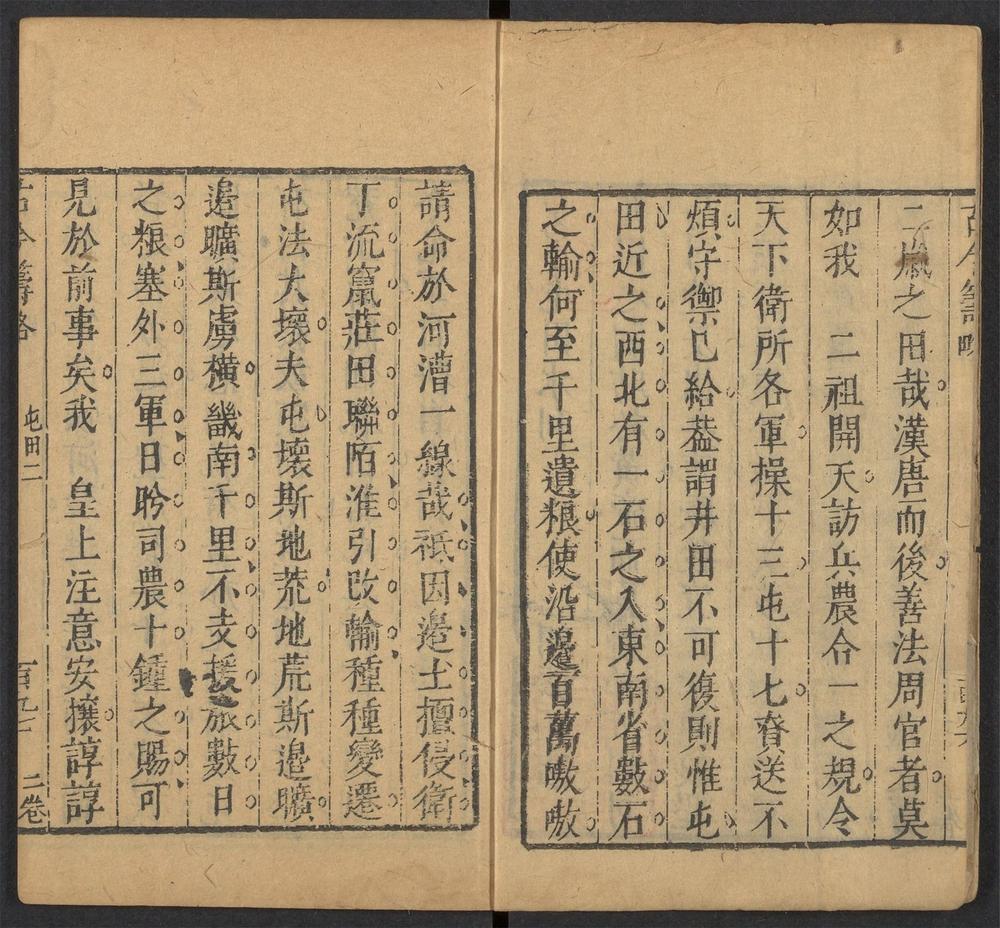 古今籌略
二嵐之田哉漢唐而後善法周官者莫
如我 二祖開天訪兵農合一之規令
天下衛所各軍操十三屯十七資送不
煩守禦已給葢謂井田不可復則惟屯
田近之西北有一石之入東南省數石
之輸何至千里遺粮使沿邉百萬嗷嗷
請命於河漕一線哉祗因邉土擅侵衛
丁流竄莊田聯陌淮引改輸種種變遷
屯法大壞夫屯壞斯地荒地荒斯邉曠
邉曠斯虜橫畿南千里不支援旅數日
之粮塞外三軍日盻司農十鍾之賜可
見於前事矣我 皇上注意安攘諄諄
古今籌略 屯田二 百九七 二卷